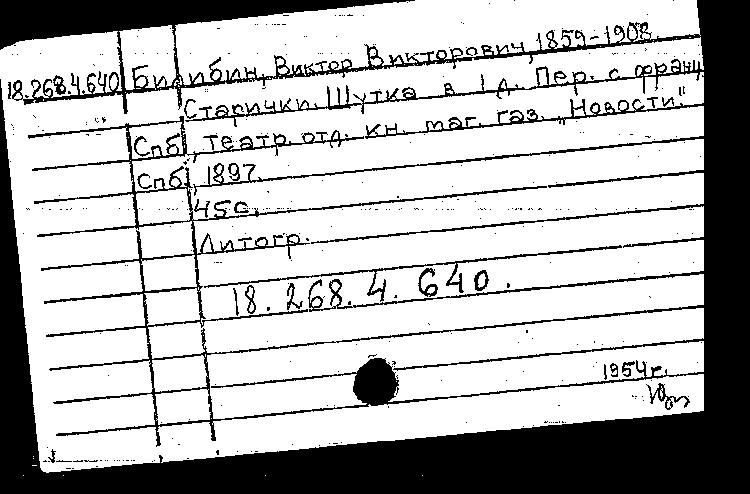 18.268.4.640 Билибин, Виктор Викторович, 1859-1908.
Старички. Шутка в 1 д. Пер. с франц.
Спб, театр. отд. кн. маг. газ. "Новости".
Спб, 1897.
45с.
Литогр.
18.268.4.640.
1954 г.